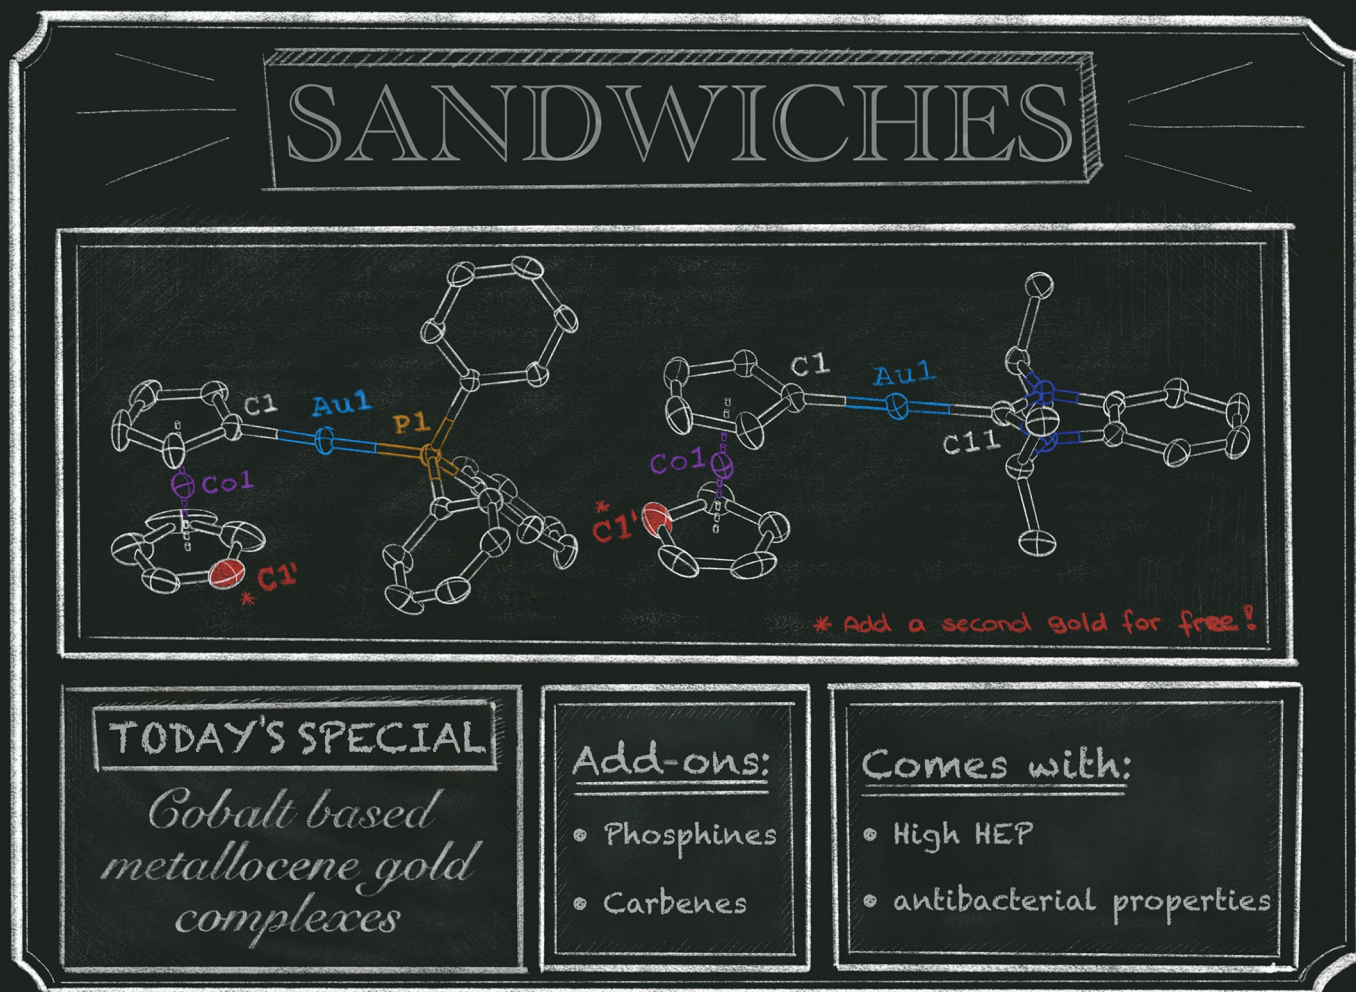 SANDWICHES
C1
Au1
P1
Co1
* C1'
C1
Au1
C11
Co1
* C1'
* Add a second gold for free!
TODAY'S SPECIAL
Cobalt based
metallocene gold
complexes
Add-ons:
• Phosphines
• Carbenes
Comes with:
• High HEP
• antibacterial properties